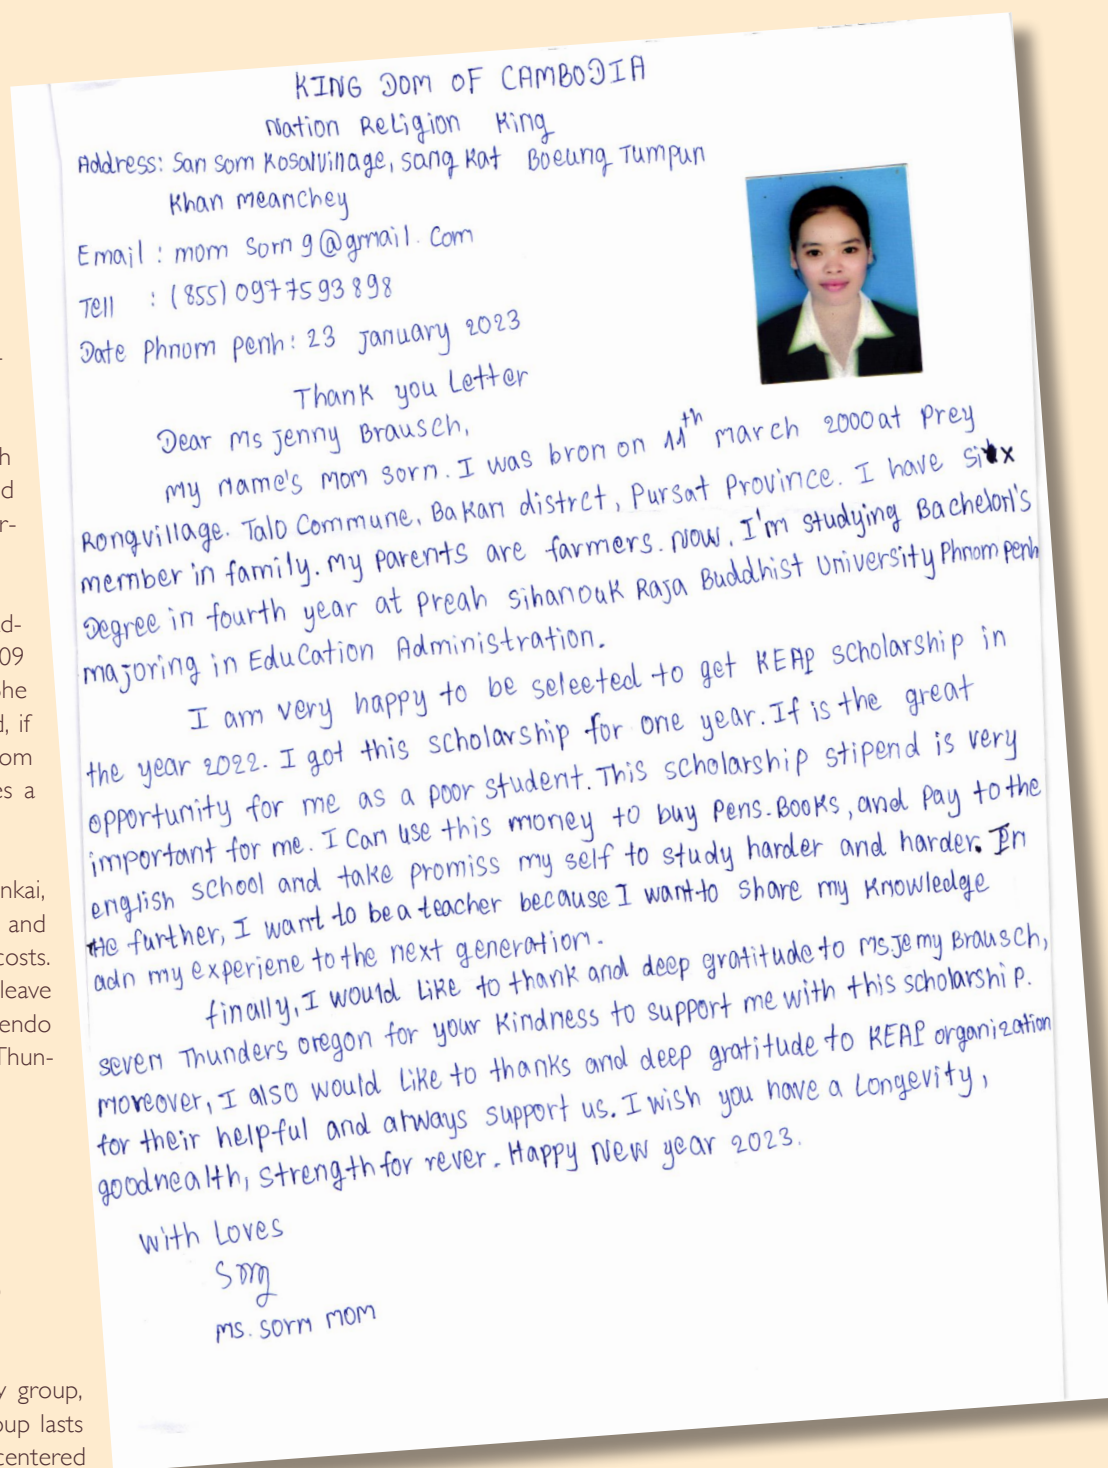 KING DOM OF CAMBODIA
Nation Religion King
Address: San Som Kosalvillage, Sang Kat Boeung Tumpun
Khan meanchey
Email : mom Sorn 9@gmail. Com
Tell : (855) 0977593898
Date Phnom penh: 23 January 2023
Thank you Letter
Dear Ms Jenny Brausch,
my name's mom sorn. I was bron on 11th march 2000 at Prey
Rongvillage. Talo Commune, Bakan distrct, Pursat Province. I have six
member in family. my parents are farmers. Now, I'm studying Bachelori's
Degree in fourth year at Preah Sihanouk Raja Buddhist University Phnom penh
majoring in Education Administration.
I am very happy to be seleeted to get KEAP scholarship in
the year 2022. I got this scholarship for one year. If is the great
opportunity for me as a poor student. This scholarship stipend is very
important for me. I Can use this money to buy Pens. Books, and Pay to the
english school and take promiss my self to study harder and harder. In
the further, I want to be a teacher because I want to share my knowledge
adn my experiene to the next generation.
finally, I would like to thank and deep gratitude to Ms. Jemy Brausch,
seven Thunders oregon for your kindness to support me with this scholarship.
moreover, I also would like to thanks and deep gratitude to KEAP organization
for their helpful and always support us. I wish you have a Longevity,
goodhealth, strength for rever. Happy New year 2023.
with Loves
ms. sorn mom
h
d
r-
d-
09
he
d, if
om
es a
nkai,
and
costs.
leave
endo
Thun-
y group,
oup lasts
centered